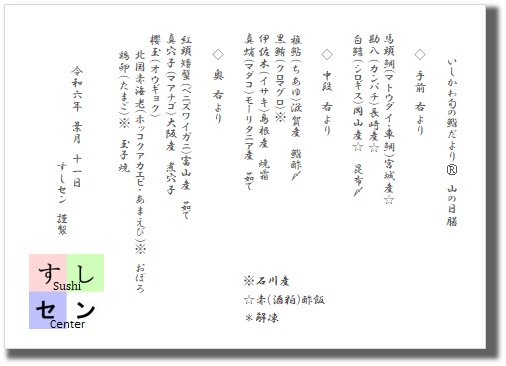 いしかわ旬の鮨だより® 山の日膳
◇ 手前 右より
馬頭鯛(マトウダイ・車鯛)宮城産☆
勘八(カンパチ)長崎産☆
白鱚(シロギス)岡山産☆ 昆布〆
◇ 中段 右より
稚鮎(ちあゆ)滋賀産 鮨酢〆
黒鮪(クロマグロ)※
伊佐木(イサキ)島根産 焼霜
真蛸(マダコ)モーリタニア産 茹で
◇ 奥 右より
紅頭矮蟹(ベニズワイガニ)富山産 茹で
真穴子(マアナゴ)大阪産 煮穴子
櫻玉(オウギョク)
北国赤海老(ホッコクアカエビ・あまえび)※ おぼろ
鶏卵(たまご)※ 玉子焼
令和六年 葉月 十一日
すしセン 謹製
※石川産
☆赤(酒粕)酢飯
＊解凍
すし
Sushi
セン
Center